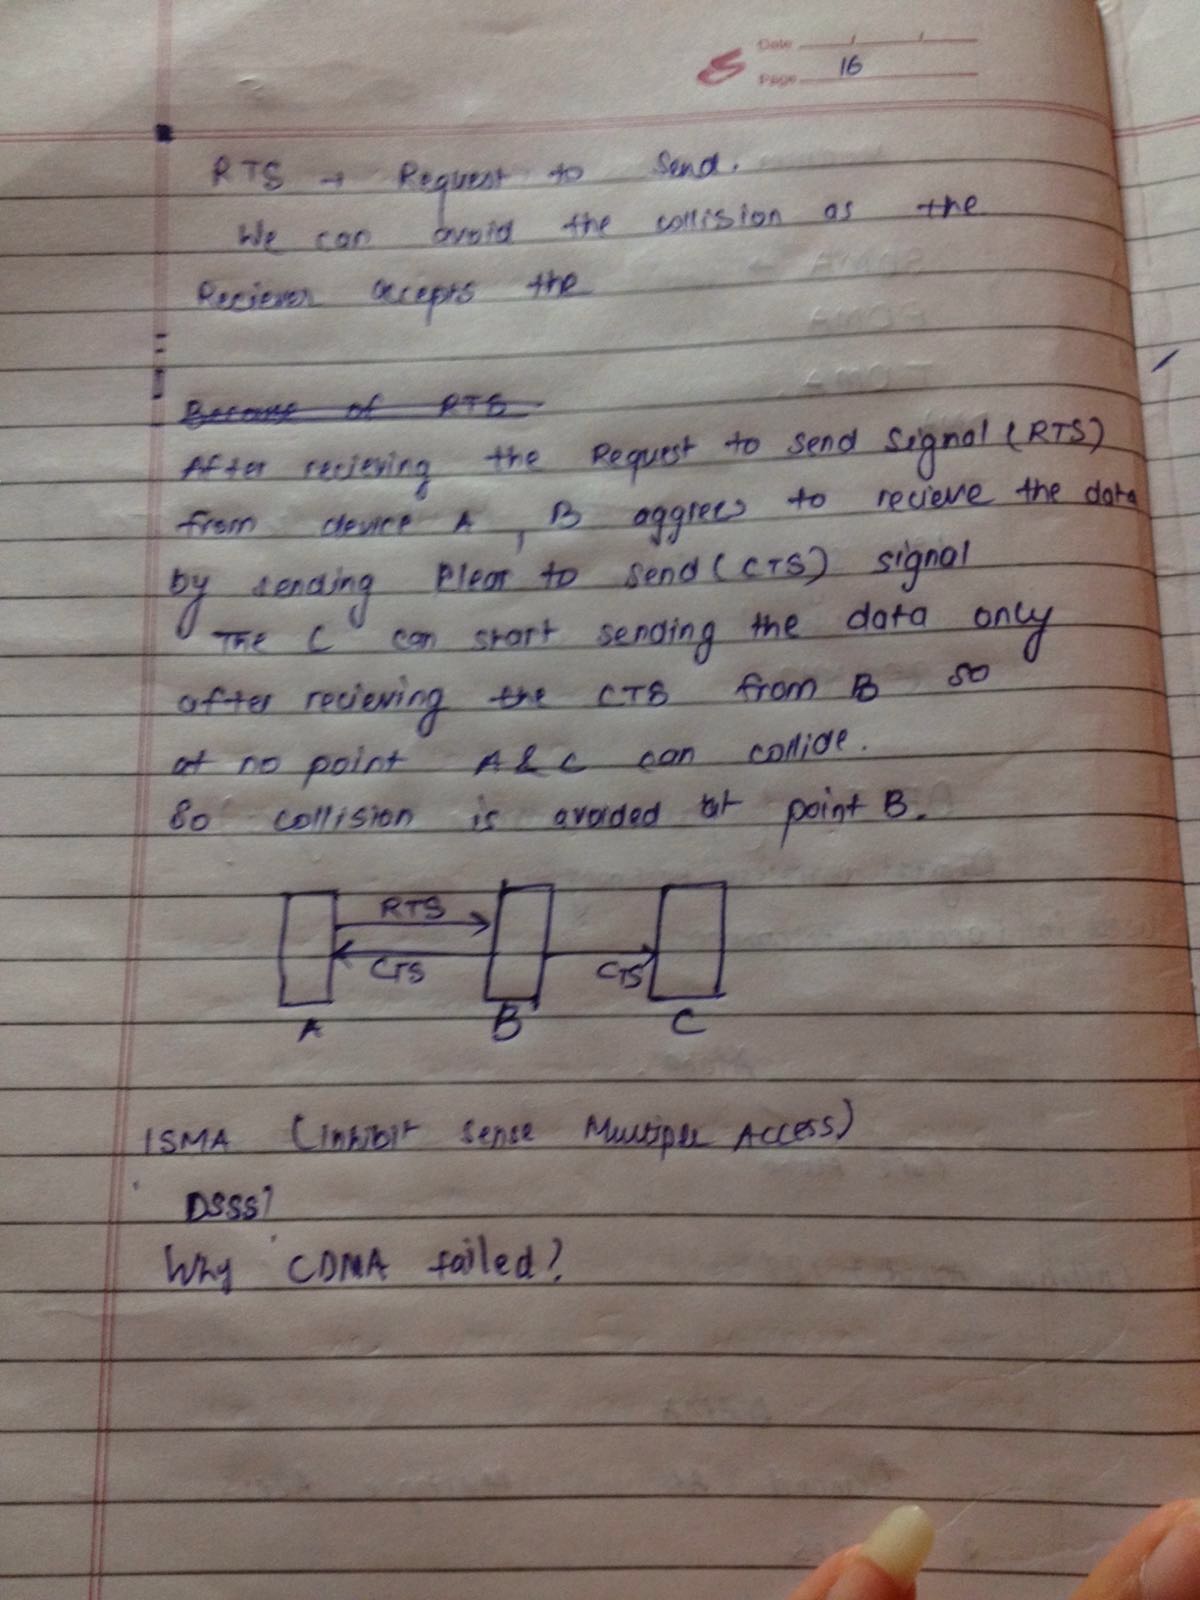 Date
Page 16
RTS → Request to Send.
We can avoid the collision as the
Reciever accepts the
Because of RTS
After recieving the Request to send signal (RTS)
from device A, B aggrees to recieve the data
by sending to send (CTS) signal
The C can start sending the data only
after recieving the CTS from B so
at no point A & C can collide.
So collision is avoided at point B.
RTS
CTS CTS
A B C
ISMA (Inhibit Sense Multiple Access)
DSSS?
Why CDMA failed?